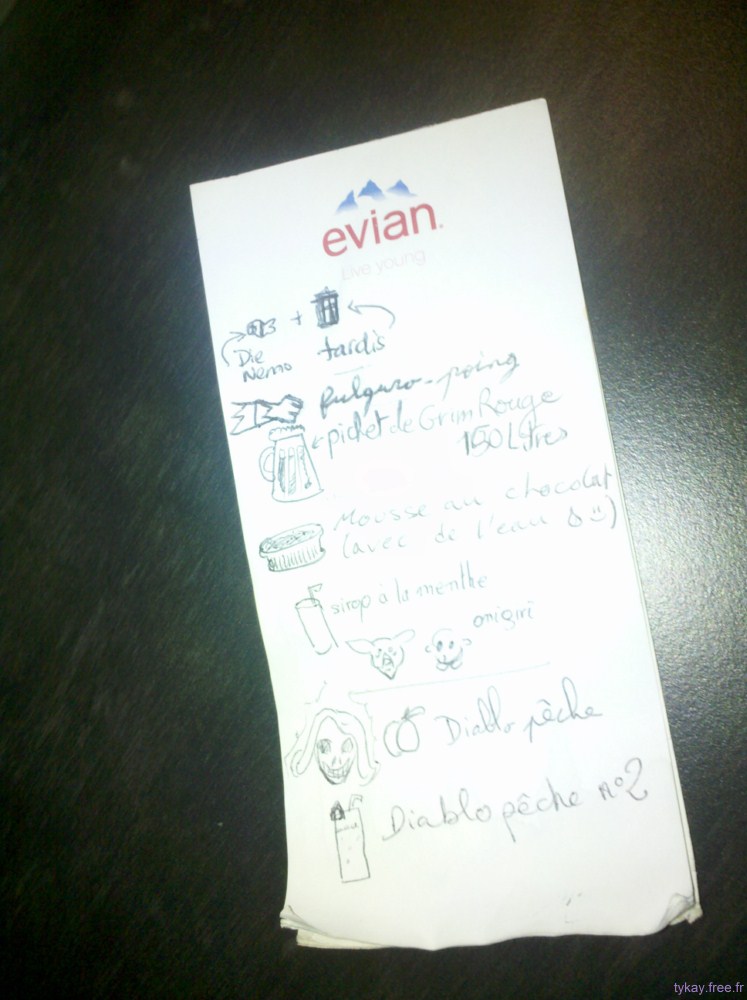 evian.
Live young
+
Die
Nemo
tardis
fulguro-poing
pichet de Grim Rouge
150 Litres
Mousse au chocolat
(avec de l'eau
sirop à la menthe
onigiri
Diablo pêche
Diablo pêche n°2
tykay.free.fr